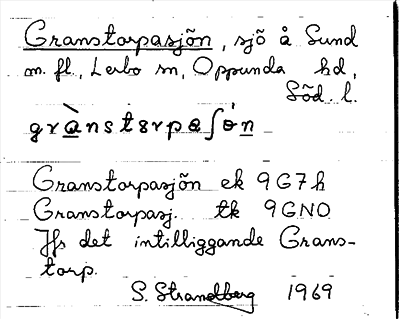 Granstorpasjön, sjö å Sund
m. fl., Lerbo sn, Oppunda hd,
Söd. l.
grànstɔrpaʃö̀n
Granstorpasjön ek 9G7h
Granstorpasj. tk 9GNO
Jfr det intilliggande Grans-
torp.
S. Strandberg 1969